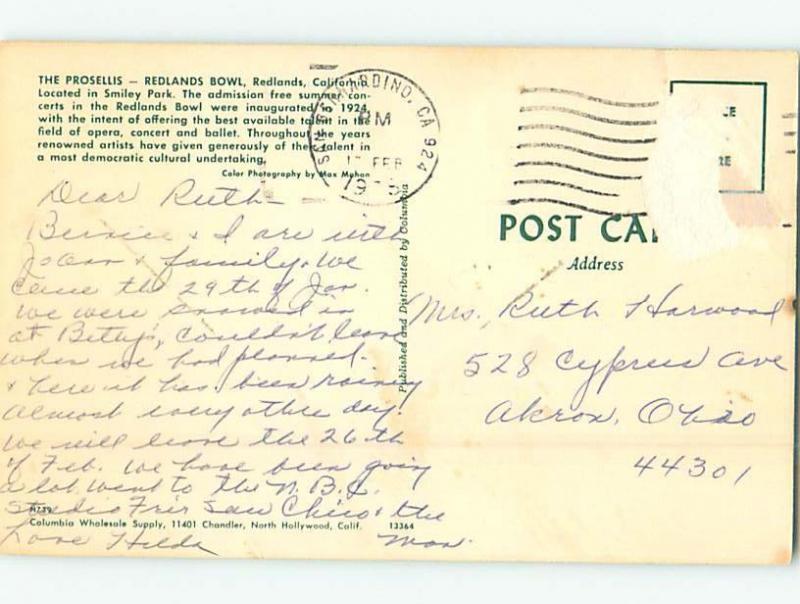 THE PROSELLIS — REDLANDS BOWL, Redlands, California
Located in Smiley Park. The admission free summer con-
certs in the Redlands Bowl were inaugurated in 1924,
with the intent of offering the best available talent in the
field of opera, concert and ballet. Throughout the years
renowned artists have given generously of their talent in
a most democratic cultural undertaking.
Color Photography by Max Mahan
Dear Ruth –
Bernice & I are with
Joann & family. We
came the 29th of Jan.
We were snowed in
at Betty's, couldn't leave
when we had planned.
& here it has been rainy
almost every other day.
We will leave the 26th
of Feb. We have been going
a lot. Went to the N.B.C.
studio Fri. saw Chico & the
Love Hilda Man.
H739
Columbia Wholesale Supply, 11401 Chandler, North Hollywood, Calif. 13364
Published and Distributed by Columbia
SAN BERNARDINO, CA 924
PM
FEB
POST CA
Address
Mrs. Ruth Harwood
528 Cyprus Ave
Akron, Ohio
44301